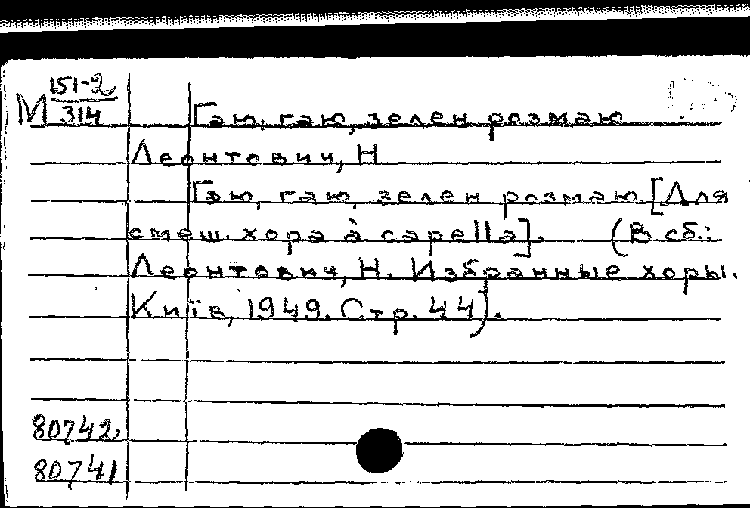 М 151-2
314
Гаю, гаю, зелен розмаю
Леонтович, Н
Гаю, гаю, зелен розмаю [Для
смеш. хора à capella]. (В сб.:
Леонтович, Н. Избранные хоры.
Київ, 1949. Стр. 44).
80742
80741